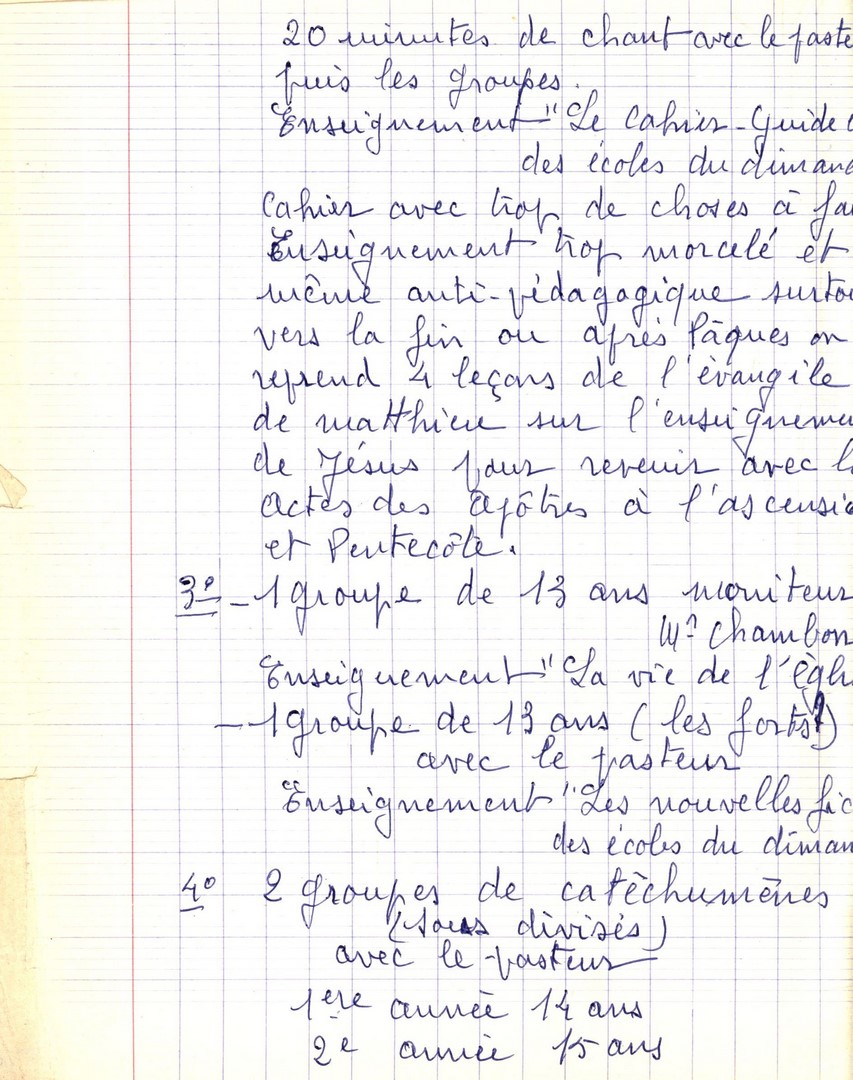 20 minutes de chant avec le paste
puis les groupes.
Enseignement "Le Cahier-Guide
des écoles du dimanc
Cahier avec trop de choses à fai
Enseignement trop morcelé et
même anti-pédagogique surtou
vers la fin ou après Pâques on
reprend 4 leçons de l'évangile
de matthieu sur l'enseigneme
de Jésus pour revenir avec l
Actes des Apôtres à l'ascensio
et Pentecôte.
3° - 1 groupe de 13 ans moniteur
Mr Chambon
Enseignement "La vie de l'égli
- 1 groupe de 13 ans (les forts!)
avec le pasteur
Enseignement "Les nouvelles fic
des écoles du diman
4° 2 groupes de catéchumènes
(sous divisés)
avec le pasteur
1ere année 14 ans
2e année 15 ans